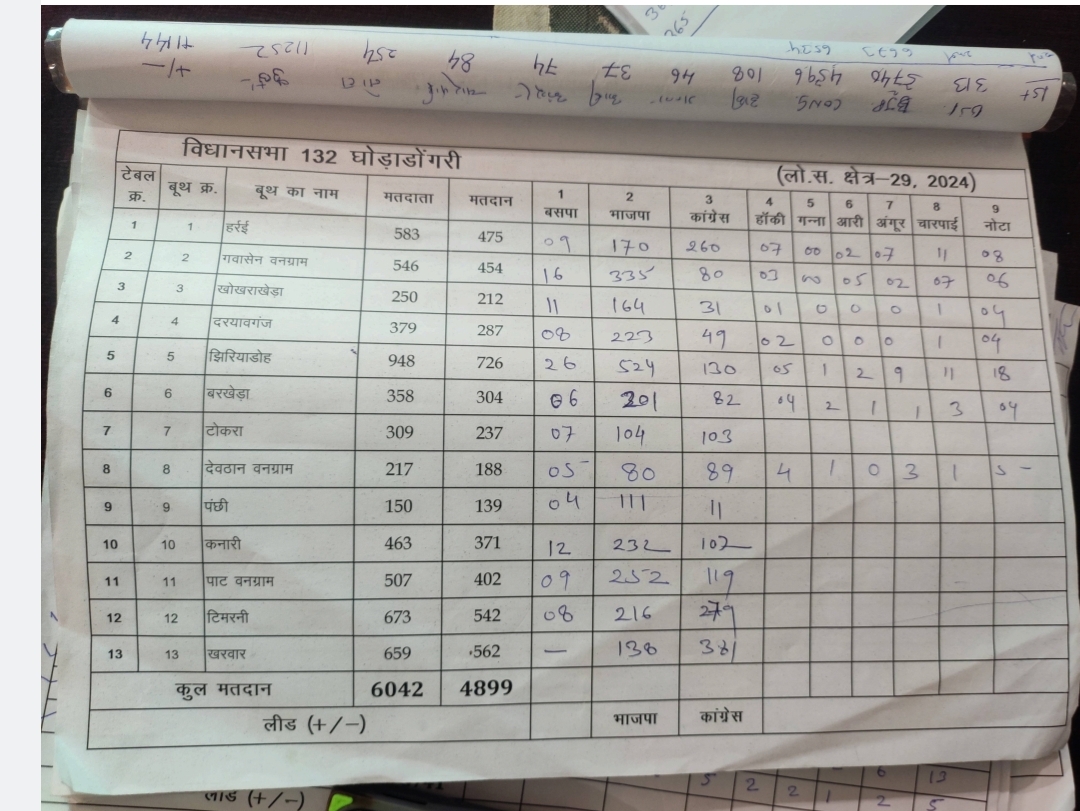 विधानसभा 132 घोड़ाडोंगरी (लो.स. क्षेत्र–29, 2024)
टेबल क्र. बूथ क्र. बूथ का नाम मतदाता मतदान 1 बसपा 2 भाजपा 3 कांग्रेस 4 हॉकी 5 गन्ना 6 आरी 7 अंगूर 8 चारपाई 9 नोटा
1 1 हर्रई 583 475 09 170 260 07 00 02 07 11 08
2 2 गवासेन वनग्राम 546 454 16 335 80 03 00 05 02 07 06
3 3 खोखराखेड़ा 250 212 11 164 31 01 0 0 0 1 04
4 4 दरयावगंज 379 287 08 223 49 02 0 0 0 1 04
5 5 झिरियाडोह 948 726 26 524 130 05 1 2 9 11 18
6 6 बरखेड़ा 358 304 06 201 82 04 2 1 1 3 04
7 7 टोकरा 309 237 07 104 103
8 8 देवठान वनग्राम 217 188 05 80 89 4 1 0 3 1 5
9 9 पंछी 150 139 04 111 11
10 10 कनारी 463 371 12 232 102
11 11 पाट वनग्राम 507 402 09 252 119
12 12 टिमरनी 673 542 08 216 279
13 13 खरवार 659 562 — 138 381
कुल मतदान 6042 4899
लीड (+/–) भाजपा कांग्रेस
1st 313 5740 4596 108 46 37 74 84 254 11252 +1144
BSP BJP CONG नोटा कुल +/-
लीड (+/–)
5 2 2 1 2 5
6 13